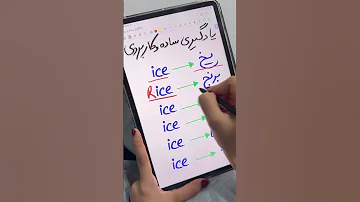 یادگیری ساده و کاربردی
ice → یخ
Rice → برنج
ice →
ice →
ice →
ice →